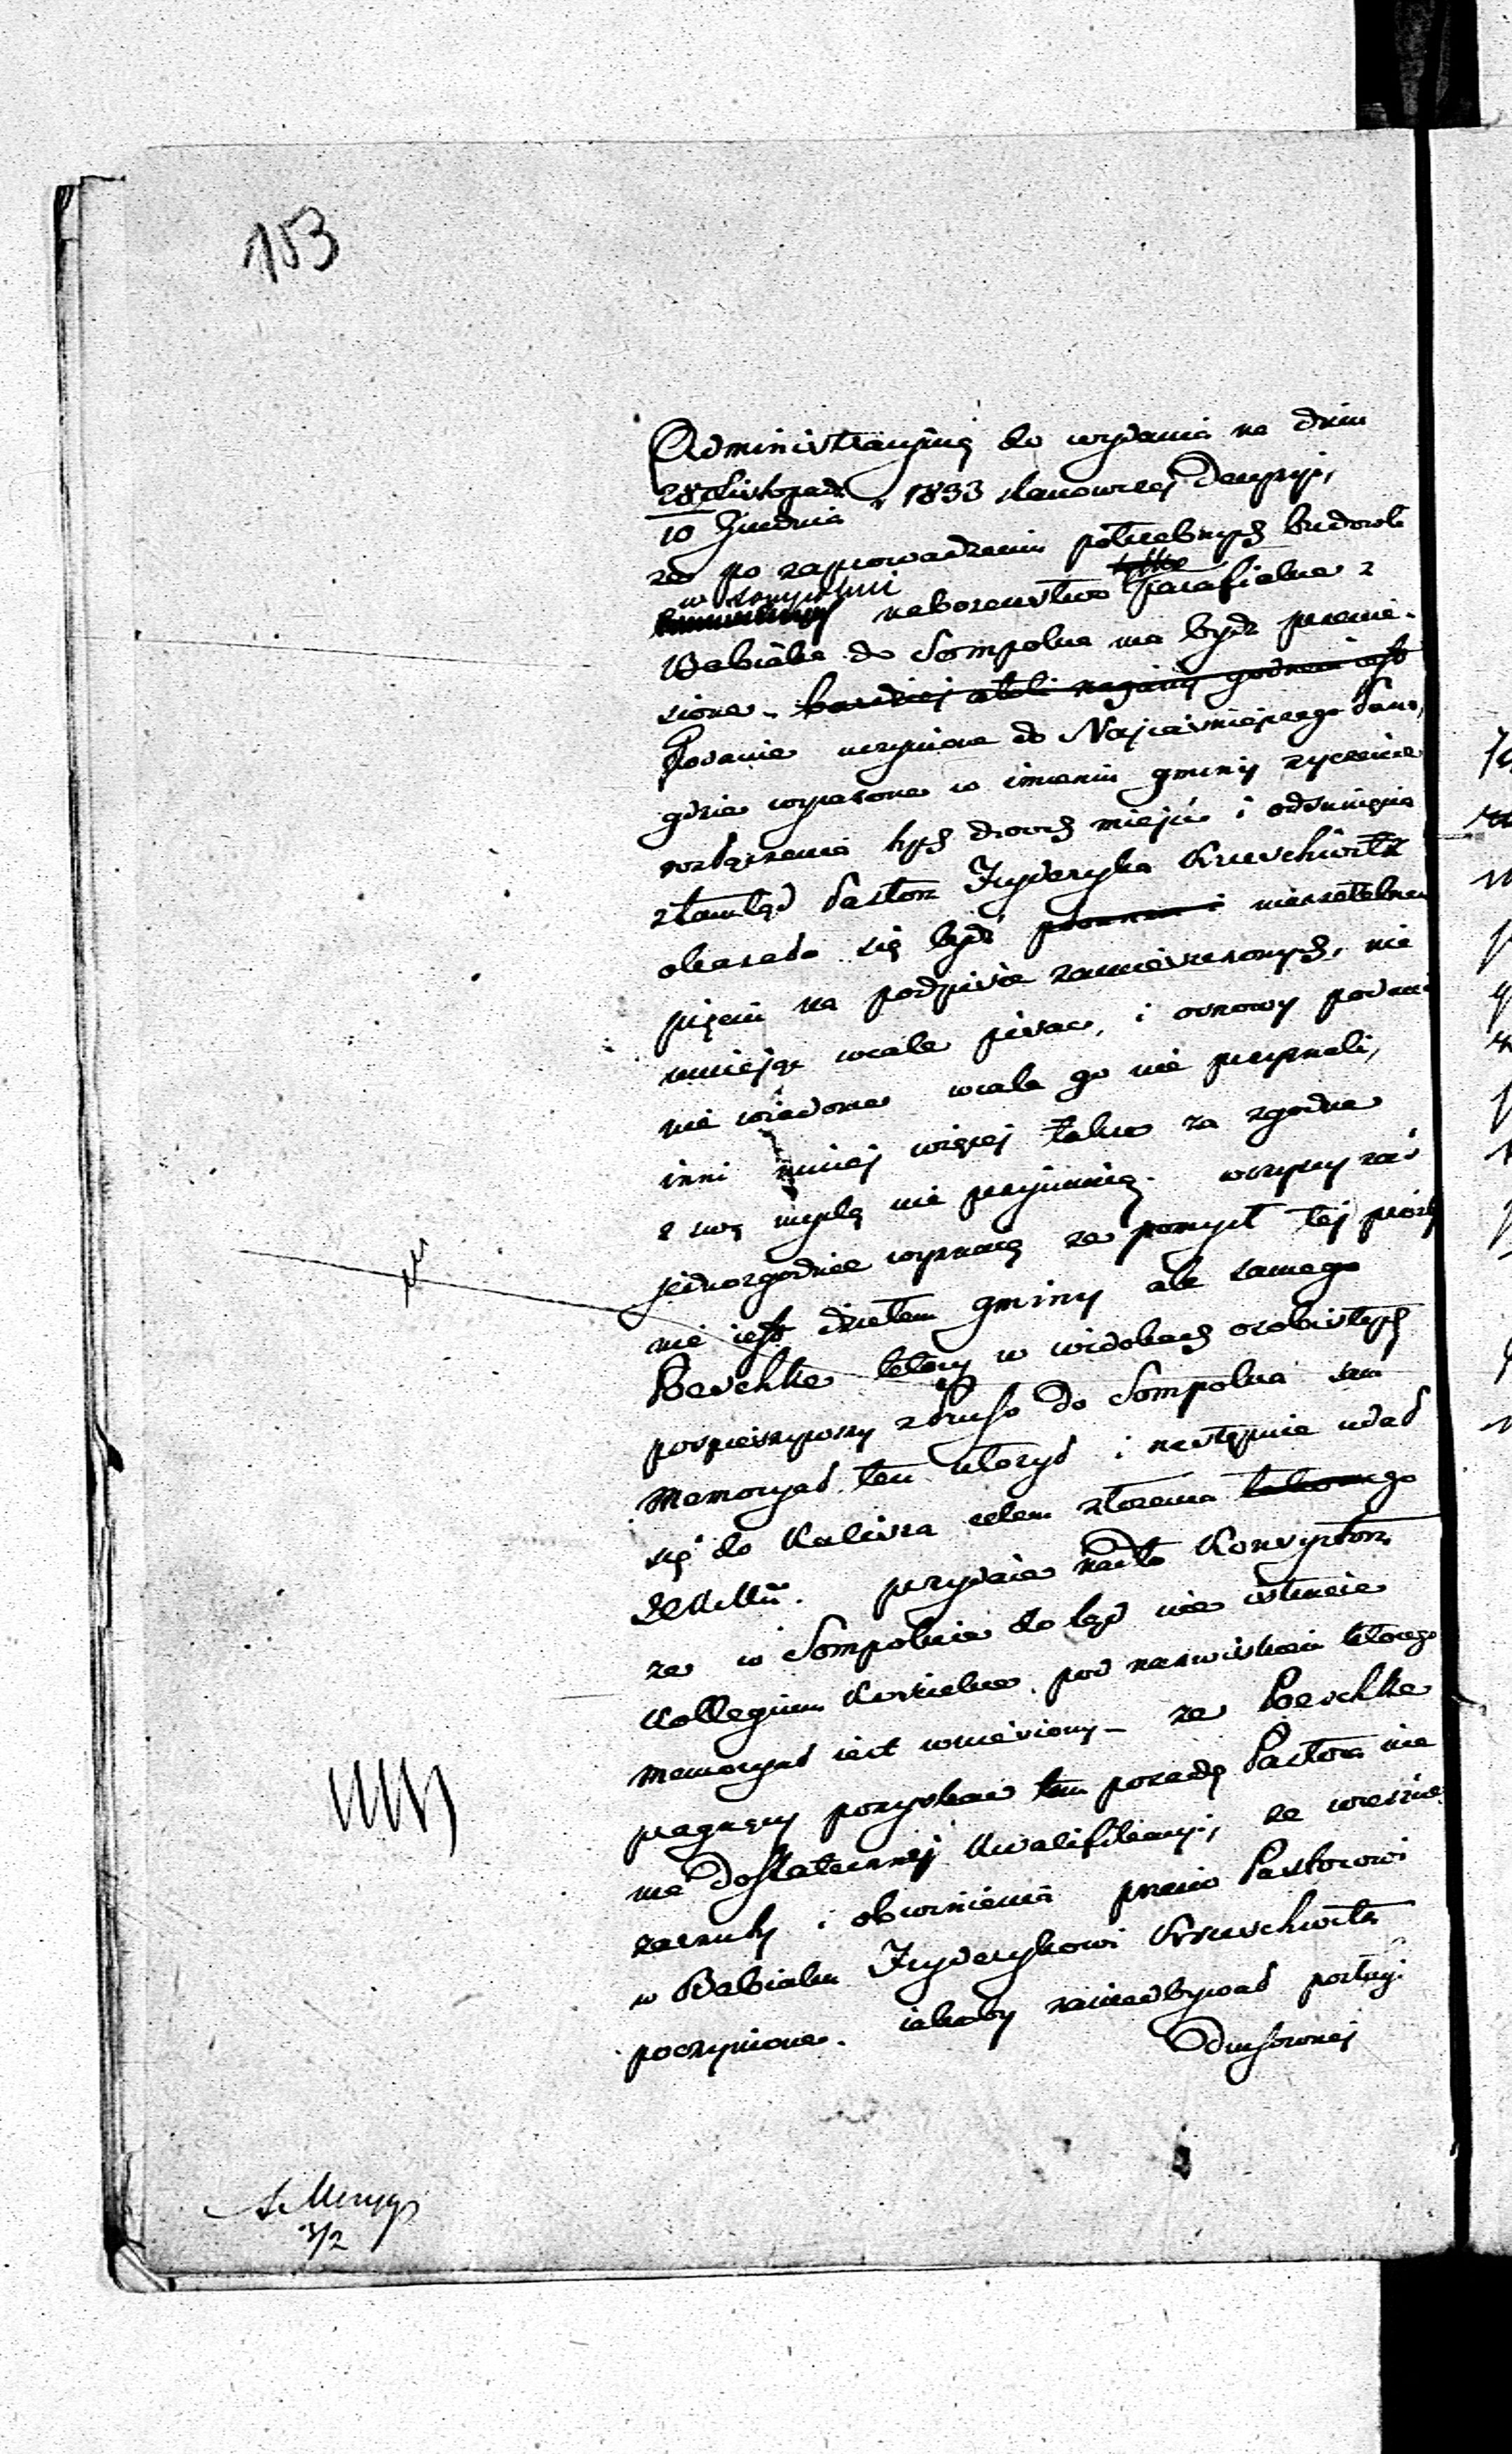 153
Administracyiną do wydania na dniu
28 Listopada
10 Grudnia r. 1833 stanowczej Decyzyi,
że po zaprowadzeniu potrzebnych budowli
w Sompolni nabożeństwo parafialne z
Babiaka do Sompolna ma bydź przenie-
sione. bardziej atoli nagany godnem iest
Podanie uczynione do Najjaśniejszego Pana,
gdzie wyrażone w imieniu gminy życzenie
rozłączenia tych dwóch miejsc i odsunięcia
ztamtąd Pastora Fryderyka Kreuschwitz
okazało się bydź nierzetelnem
pięciu na podpisie zamieszczonych, nie
umiejąc wcale pisać, i osnowy podania
nie wiadome wcale go nie przyznali,
inni mniej więcej takie za zgodne
z swą myślą nie przyjmują. wszyscy zaś
jednozgodnie wyznają że pomysł tej prośby
nie iest dziełem gminy ale samego
Beschke który w widokach osobistych
pospieszywszy z Brusso do Sompolna sam
Memoryał ten ułożył i następnie udał
się do Kalisza celem złożenia takowego
przydaie nadto Konsystorz
że w Sompolnie do tąd nie istnieie
Kollegium Kościelne pod nazwiskiem którego
memoryał iest wniesiony – że Beschke
pragnący pozyskać tam posadę Pastora nie
ma dostatecznej kwalifikacyi, że wreszcie
zarzuty i obwinienia przeciw Pastorowi
w Babiaku Fryderykowi Kreuschwitz
poczynione. iakoby zaniedbywał posługi
Duchownej
3/2